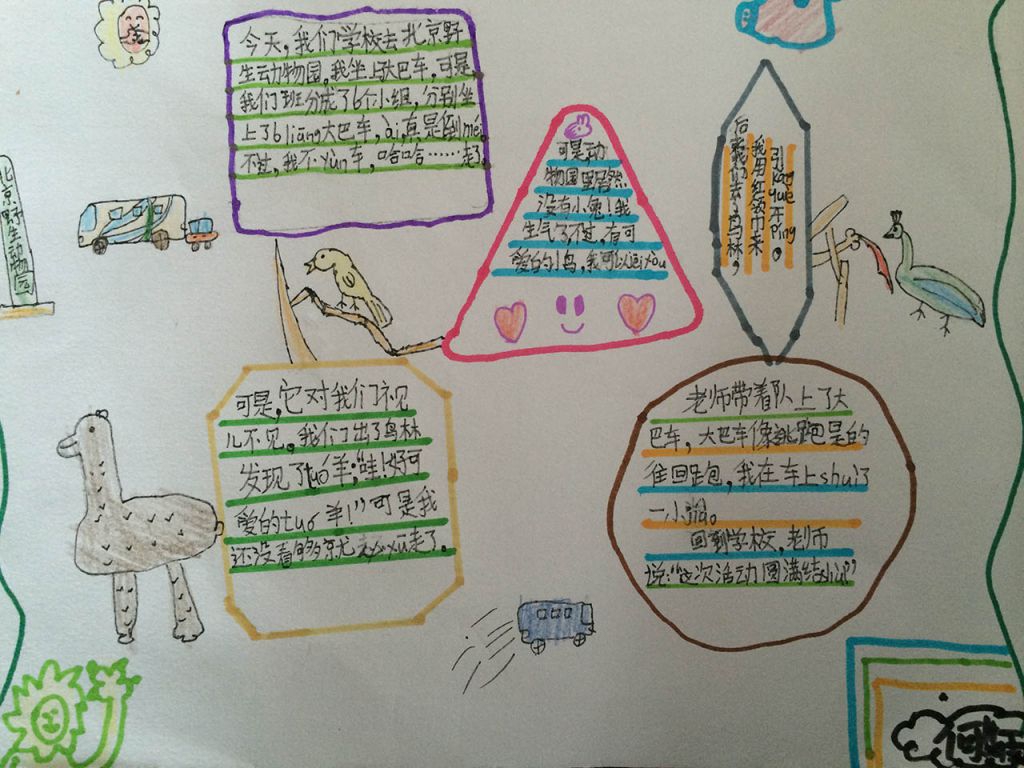 今天,我们学校去北京野
生动物园,我坐上大巴车,可是
我们班分成了6个小组,分别坐
上了6liàng大巴车,ài,真是倒mei,
不过,我不yūn车,哈哈……走了
可是,动
物园里居然
没有小兔!我
生气了,不过,有可
爱的小鸟,我可以
后来我们去了鸟林,
我用红领巾来
引kǒng què开Píng。
北京野生动物园
可是,它对我们不见
儿不见。我们出了鸟林
发现了tuó羊;“哇!好可
爱的tuó羊!”可是我
还没看够
走了。
老师带着队上了大
巴车,大巴车像逃跑是的
往回跑,我在车上shuì了
一小
回到学校,老师
说:“这次活动圆满结